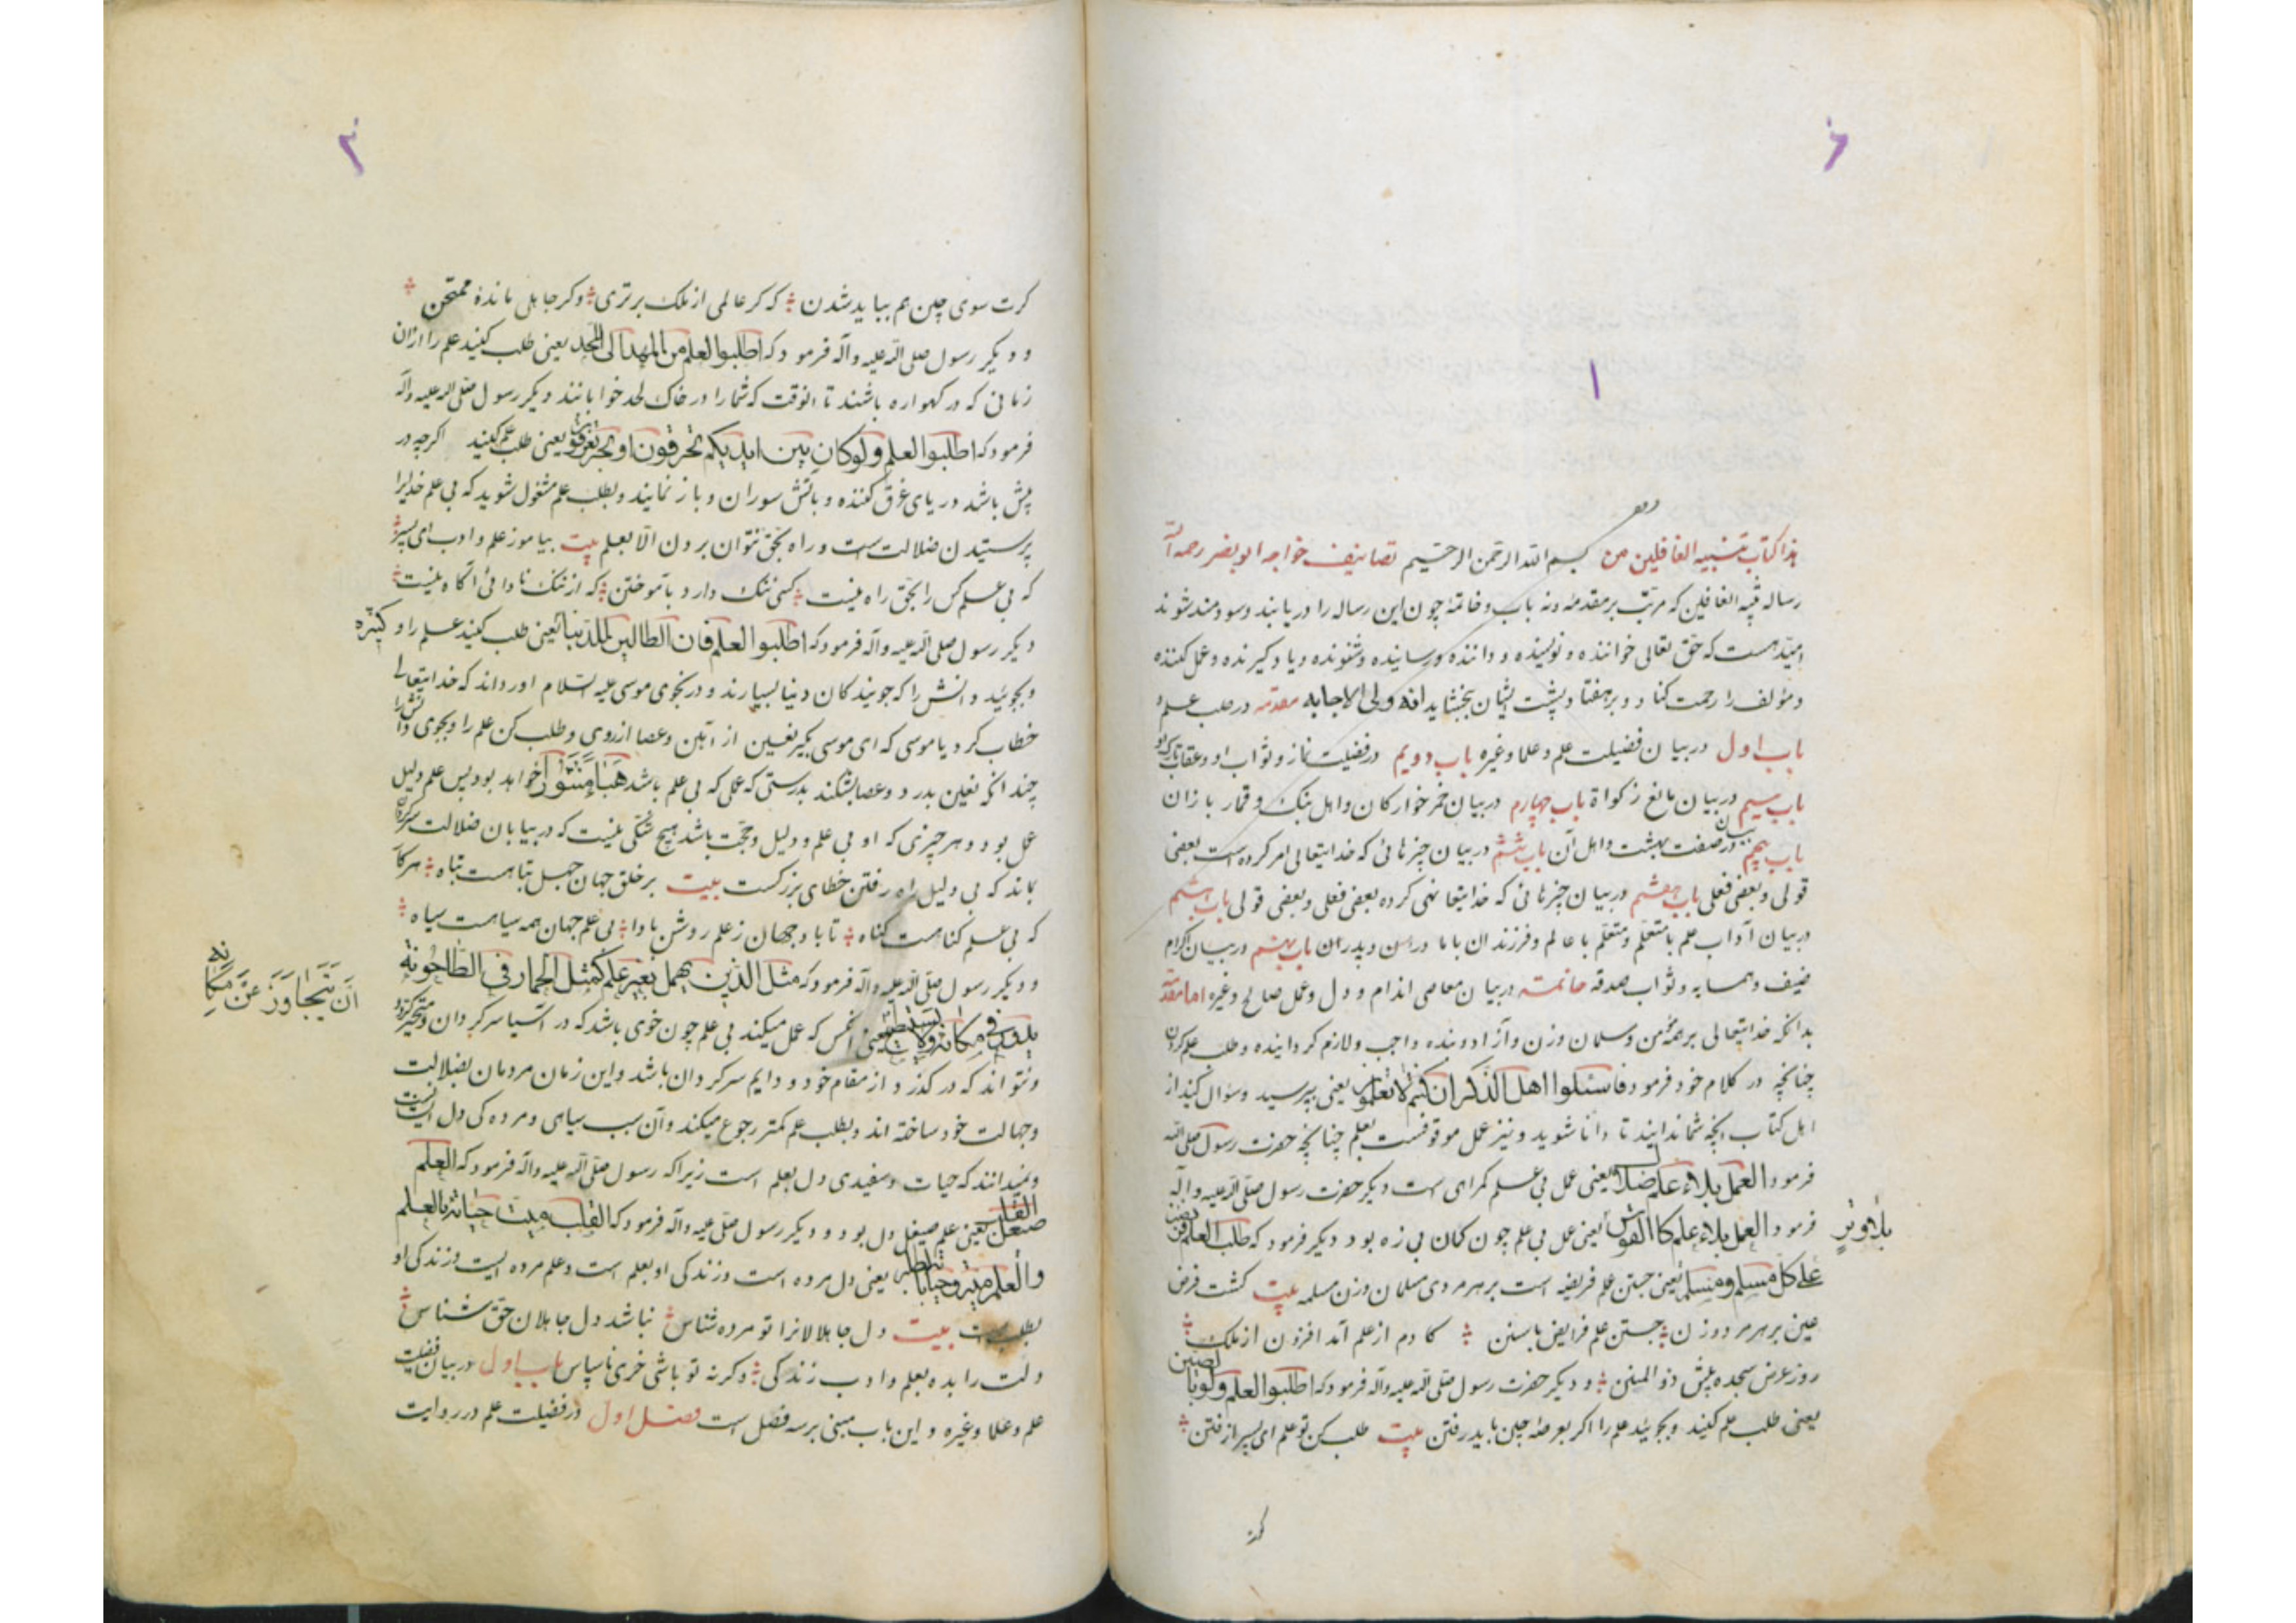 ۱
هذا کتاب تنبیه الغافلین من بسم الله الرحمن الرحیم تصانیف خواجه ابو نصر رحمه الله
رساله تنبیه الغافلین که مرتب بر مقدمه ونه باب وخاتمه چون این رساله را دریابند وسودمند شوند
امید هست که حق تعالی خواننده ونویسنده وداننده ورساننده وشنونده ویادگیرنده وعمل کننده
ومؤلف را رحمت کناد وبر هفتاد پشت ایشان بخشاید انه ولی الاجابه مقدمه در طلب علم و
باب اول در بیان فضیلت علم وعلما وغیره باب دویم در فضیلت نماز وثواب او وعقاب تارک او
باب سیم در بیان مانع زکواة باب چهارم در بیان خمر خوارکان واهل بنک وقمار بازان
باب پنجم در بیان صفت بهشت واهل آن باب ششم در بیان چیزهائی که خدایتعالی امر کرده است بعضی
قولی وبعضی فعلی باب هفتم در بیان چیزهائی که خدایتعا نهی کرده بعضی فعلی وبعضی قولی باب هشتم
در بیان آداب علم با متعلم ومتعلم با عالم وفرزندان با مادران وپدران باب نهم در بیان اکرام
ضیف وهمسایه وثواب صدقه خاتمه در بیان معاصی اندام ودل وعمل صالح وغیره اما مقدمه
بدانکه خدایتعالی بر همه مؤمن ومسلمان وزن وآزاد وبنده واجب ولازم کردانیده وطلب علم کردن
چنانچه در کلام خود فرمود فاسئلوا اهل الذکر ان کنتم لا تعلمون یعنی بپرسید وسؤال کنید از
اهل کتاب انچه شما ندانید تا دانا شوید ونیز عمل موقوفست بعلم چنانچه حضرت رسول صلی الله
فرمود العمل بلاء علم ضلال یعنی عمل بی علم کمراهی است ودیکر حضرت رسول صلی الله علیه وآله
فرمود العمل بلاء علم کا القوس بلا وتر یعنی عمل بی علم چون کمان بی زه بود دیکر فرمود که طلب العلم فریضة
علی کل مسلم ومسلمة یعنی جستن علم فریضه است بر هر مردی مسلمان وزن مسلمه بیت کشت فرض
عین بر هر مرد وزن جستن علم فرایض با سنن کادم از علم آمد افزون از ملک
روز عرض سجده پیش ذو المنن ودیکر حضرت رسول صلی الله علیه وآله فرمود که اطلبوا العلم ولو بالصین
یعنی طلب علم کنید وبجوئید علم را اکر بعرصه چین باید رفتن بیت طلب کن تو علم ای پسر از فتن
کرت سوی چین هم بباید شدن که کر عالمی از ملک برتری وکر جاهل مانده ممتحن
ودیکر رسول صلی الله علیه وآله فرمود که اطلبوا العلم من المهد الی اللحد یعنی طلب کنید علم را از ان
زمانی که در کهواره باشند تا انوقت که شما را در خاک لحد خوابانند دیکر رسول صلی الله علیه وآله
فرمود که اطلبوا العلم ولو کان بین ایدیکم یعنی طلب علم کنید اکرچه در
پیش باشد دریای غرق کننده وباتش سوزان وباز نمایند وبطلب علم مشغول شوید که بی علم خدایرا
پرستیدن ضلالت است وراه بحق نتوان بردن الا بعلم بیت بیاموز علم وادب ای پسر
که بی علم کس را بحق راه نیست کسی ننک دارد بآموختن که از ننک نادانی آکاه نیست
دیکر رسول صلی الله علیه وآله فرمود که اطلبوا العلم فان الطالبین للدنیا کثیرة یعنی طلب کنید علم را و
وبجوئید دانش را که جویندکان دنیا بسیارند ودر نجوی موسی علیه السلام اورداند که خدایتعالی
خطاب کرد یا موسی که ای موسی بکیر نعلین از آهن وعصا از روی وطلب کن علم را وبجوی دانش را
چندانکه نعلین بدرد وعصا بشکند بدرستی که عملی که بی علم باشد هباء منثورا خواهد بود پس علم دلیل
عمل بود وهر چیزی که او بی علم ودلیل وحجت باشد هیچ شکی نیست که در بیابان ضلالت سرکردان
بماند که بی دلیل راه رفتن خطای بزرکست بیت بر خلق جهان جهل تباهست تباه هر کار
که بی علم کناهست کناه تا باد جهان ز علم روشن بادا بی علم جهان همه سیاهست سیاه
ودیکر رسول صلی الله علیه وآله فرمود که مثل الذین یعمل بغیر علم کمثل الحمار فی الطاحونة
یدور فی مکانه ولا یستطیع ان یتجاوز عن مکانه یعنی انکس که عمل میکند بی علم چون خری باشد که در آسیا سرکردان ومتحیر کردد
ونتواند که در کذرد از مقام خود ودایم سرکردان باشد واین زمان مردمان بضلالت
وجهالت خود ساخته اند وبطلب علم کمتر رجوع میکند وآن سبب سیاهی ومرده کی دل ایشانست
ونمیدانند که حیات وسفیدی دل بعلم است زیراکه رسول صلی الله علیه وآله فرمود که العلم
صیقل القلب یعنی علم صیقل دل بود ودیکر رسول صلی علیه وآله فرمود که القلب میت حیاته بالعلم
والعلم میت وحیاته بالطلب یعنی دل مرده است وزندکی او بعلم است وعلم مرده ایست وزندکی او
بطلب است بیت دل جاهلانرا تو مرده شناس نباشد دل جاهلان حق شناس
دلت را بده بعلم وادب زندکی وکرنه تو باشی خری ناسپاس باب اول در بیان فضیلت
علم وعلما وغیره واین باب مبنی بر سه فصل است فصل اول در فضیلت علم در روایت